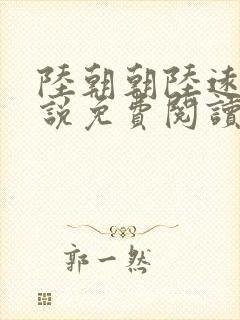 陸朝朝陸遠
說免費閱讀
郭一然